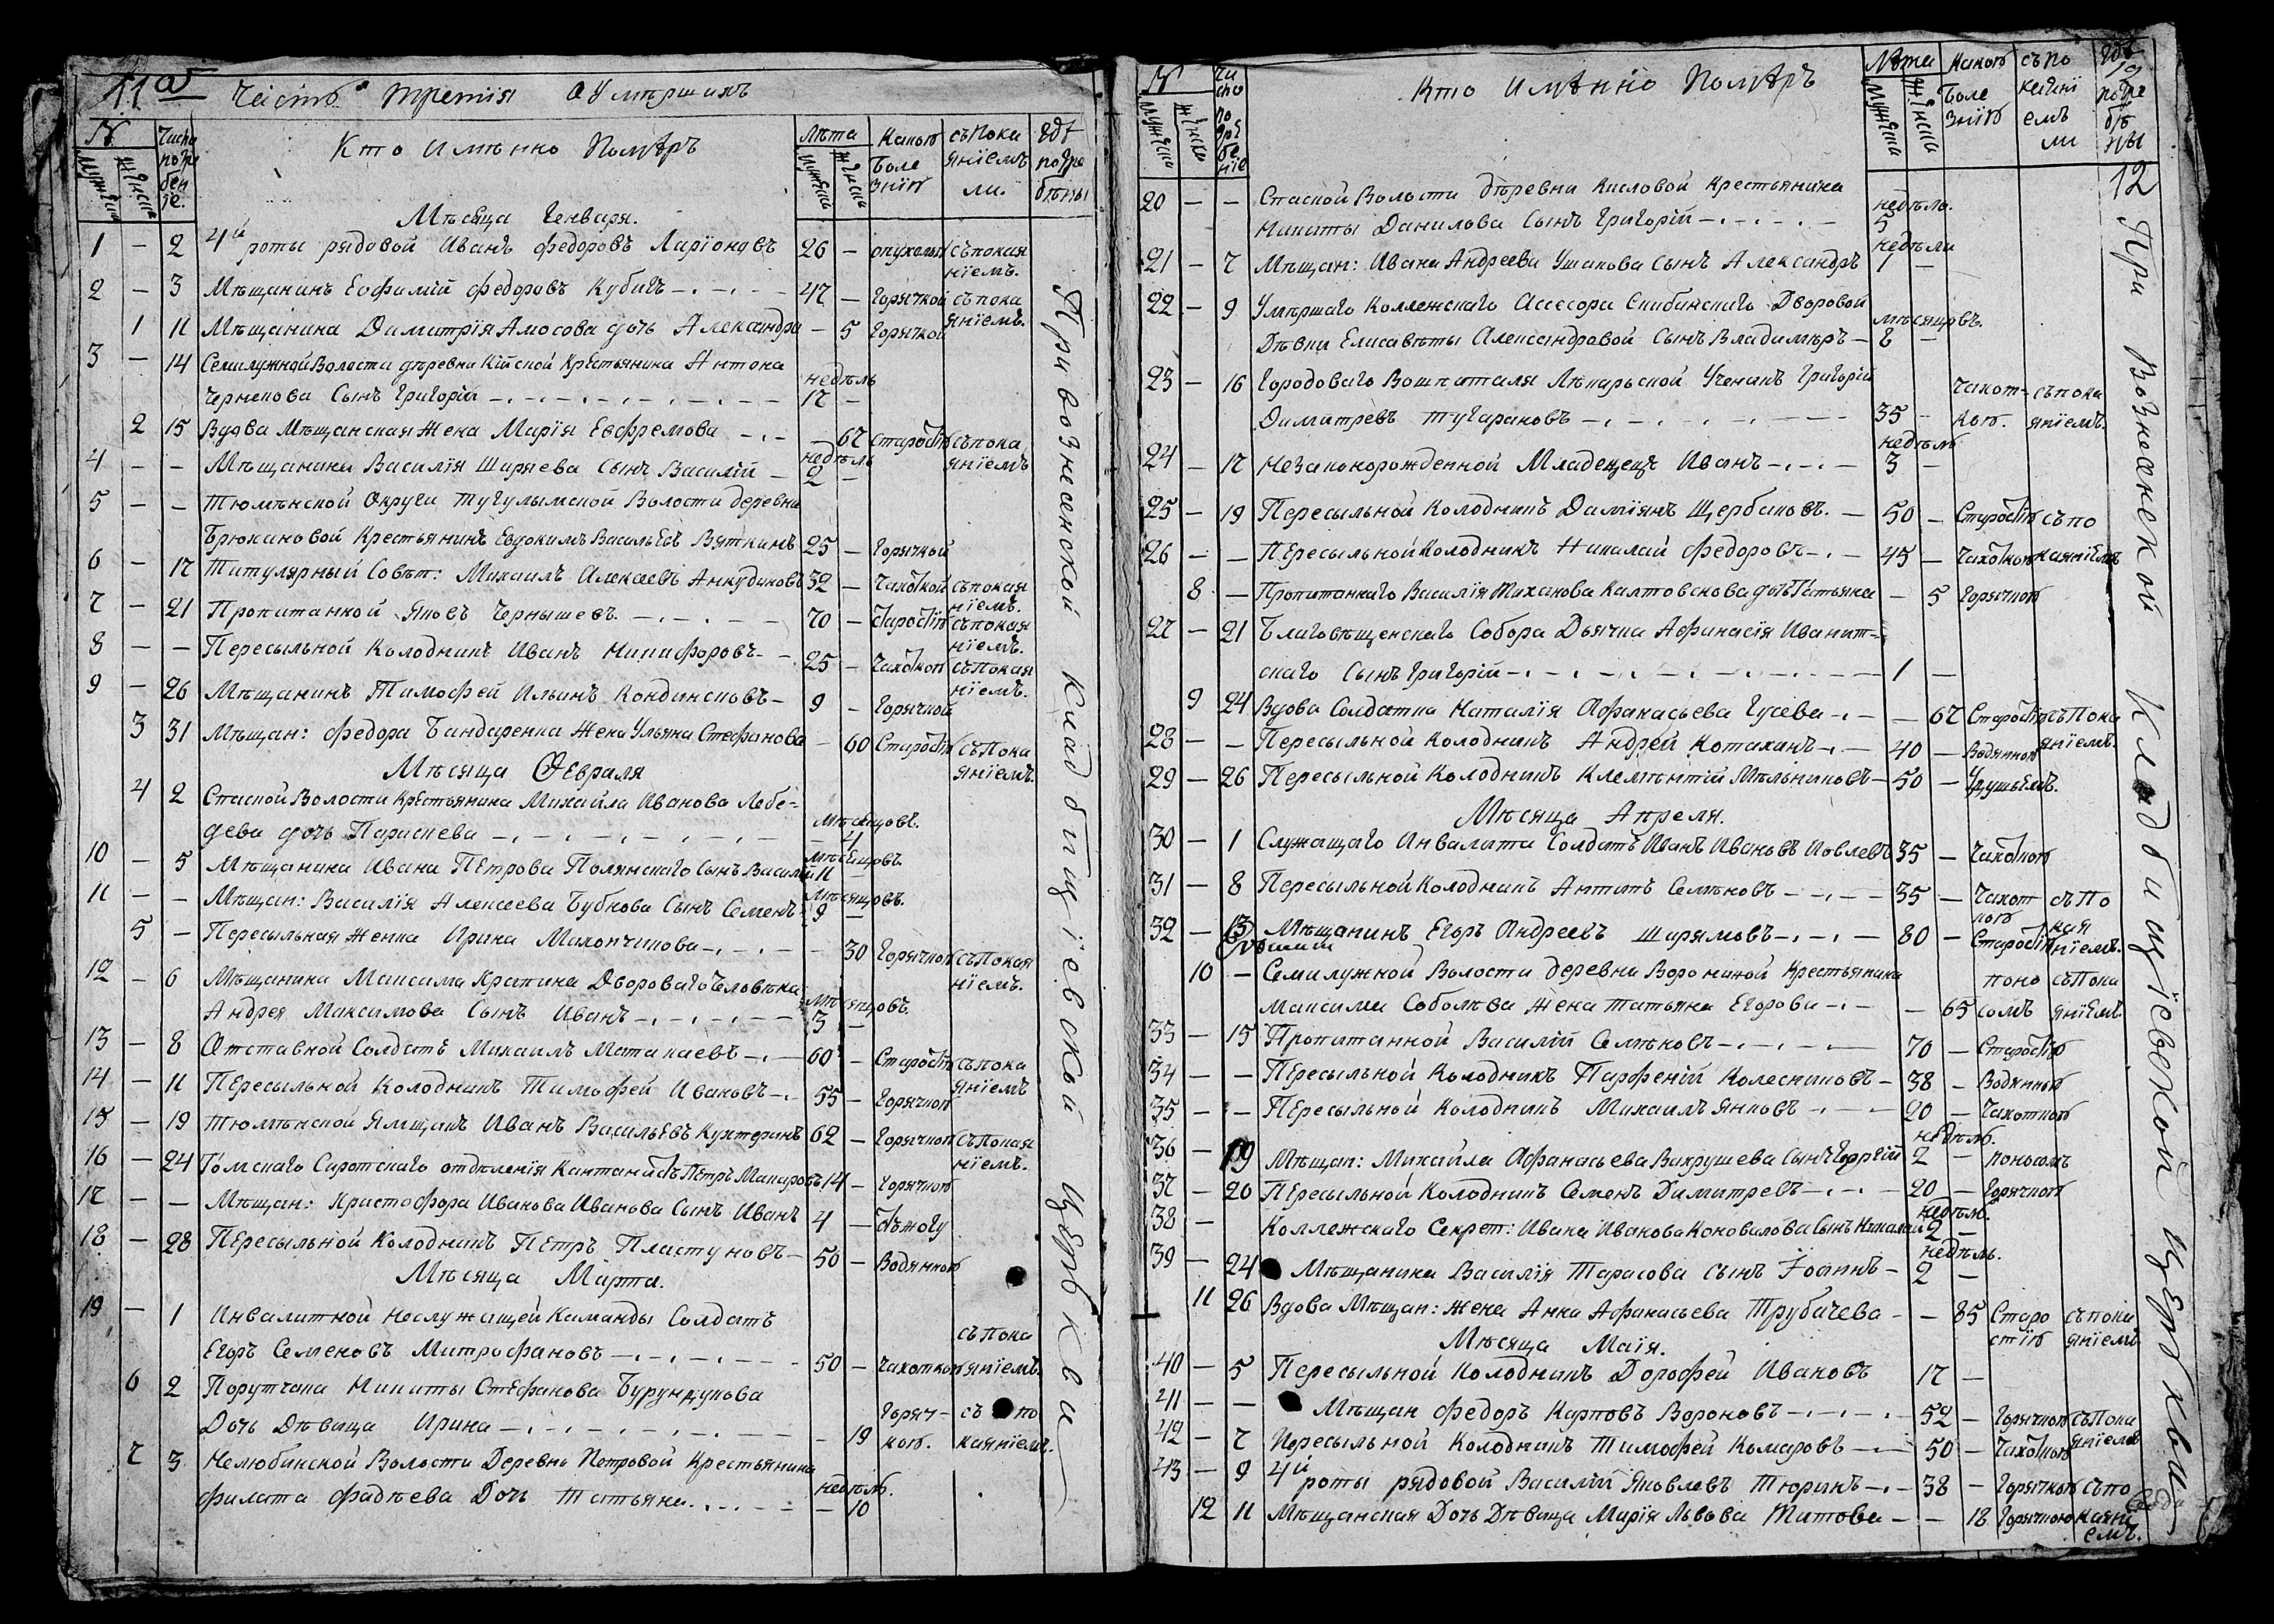 11
Часть третія О Умершихъ
№ Числа погребеніе. Кто имѣнно Померъ Лѣта Какою болѣзнію съ покаяніемъ ли. Гдѣ погребѣны
мужеска женска мужеска женска
Мѣсяца Генваря.
1 — 2 4й роты рядовой Иванъ Федоровъ Ларіоновъ 26 — опухолью съ покаяніемъ.
2 — 3 Мѣщанинъ Евфимій Федоровъ 47 — Горячкой съ покаяніемъ.
1 11 Мѣщанина Димитрія Амосова дочь Александра — 5 Горячкой
3 — 14 Семилужной Волости деревни Кійской Крестьянина Антона
Чернепова Сынъ Григорій недѣль 17 —
2 15 Вдова Мѣщанская Жена Марія Евфремова — 67 Старостію съ покаяніемъ
4 — — Мѣщанина Василія Шаряева Сынъ Василій недѣль 2 —
5 — — Тюмѣнской Округи Тугулымской Волости деревни
Брюхановой Крестьянинъ Евдокимъ Васильевъ Вяткинъ 25 — Горячкой
6 — 17 Титулярный Совѣт: Михаилъ Алексеевъ Анкудиновъ 32 — Чахоткой съ покаяніемъ.
7 — 21 Пропитанной Яковъ Чернышевъ. 70 — Старостію съ покаяніемъ.
8 — — Пересыльной Колодникъ Иванъ Никифоровъ 25 — Чахоткою съ Покаяніемъ.
9 — 26 Мѣщанинъ Тимофей Ильинъ Кондинсковъ 9 — Горячкой
3 31 Мѣщан: Федора Бандаренка Жена Ульяна Стефанова — 60 Старостію съ Покаяніемъ.
Мѣсяца Февраля
4 2 Спаской Волости Крестьянина Михайла Иванова Лебе-
дева дочь Параскева мѣсяцовъ. — 4
10 — 5 Мѣщанина Ивана Петрова Полянскаго Сынъ Василий мѣсяцовъ 11
11 — — Мѣщан: Василія Алексеева Бубнова Сынъ Семенъ мѣсяцовъ. 9 —
5 — Пересыльная Женка Ирина — 30 Горячкою съ Покаяніемъ.
12 — 6 Мѣщанина Максима Крапина Двороваго Человѣка
Андрея Максимова Сынъ Иванъ мѣсяцовъ. 3 —
13 — 8 Отставной Солдатъ Михаилъ Матакаевъ 60 — Старостію съ покаяніемъ
14 — 11 Пересыльной Колодникъ Тимофей Ивановъ 55 — Горячкою
15 — 19 Тюмѣнской Ямщикъ Иванъ Васильевъ Кухтеринъ 62 — Горячкою съ Покаяніемъ.
16 — 24 Томскаго Сиротскаго отдѣленія Кантанистъ Петръ Макаровъ 14 — Горячкою
17 — — Мѣщан: Христофора Иванова Иванова Сынъ Иванъ 4 —
18 — 28 Пересыльной Колодникъ Петръ Пластуновъ 50 — Водянкою
Мѣсяца Марта.
19 — 1 Инвалитной Неслужащей Каманды Солдатъ
Егоръ Семеновъ Митрофановъ 50 — Чахоткою съ покаяніемъ.
6 2 Порутчика Никиты Стефанова Бурундукова
Дочь Дѣвица Ирина — 19 Горячкою. съ покаяніемъ.
7 3 Нелюбинской Волости Деревни Петровой Крестьянина
Филата Фадѣева Дочь Татьяна недѣль. — 10
При вознесенской кладбищіевской церькви
№ Число погребеніе Кто имѣнно Помѣръ Лѣта Какою Болезнію съ покеянiемъ ли Гдѣ погребѣны
мужеска женска мужеска женска
12
20 — — Спаской Волости деревни Кисловой Крестьянина
Никиты Данилова Сынъ Григорій недѣль. 5
21 — 7 Мѣщан: Ивана Андреева Ушакова Сынъ Александръ недѣли 1 —
22 — 9 Умершаго Коллежскаго Асесора Скибинскаго Дворовой
Дѣвки Елисавѣты Александровой Сынъ Владимѣръ мѣсяцовъ. 8 —
23 — 16 Городоваго Вошпиталя Лѣкарьской Ученикъ Григорій
Димитревъ Тугариновъ 35 — чахоткою. съ покаяніемъ.
24 — 17 Незаконорожденной Младенецъ Иванъ недѣль 3 —
25 — 19 Пересыльной Колодникъ Даміянъ Щербаковъ. 50 — Старостію съ по
26 — — Пересыльной Колодникъ Николай Федоровъ 45 — Чахоткою каяніемъ
8 — Пропитаннаго Василія Калтовскова дочь Татьяна — 5 Горячкою
27 — 21 Благовѣщенскаго Собора Дьячка Афанасія Иванит-
скаго Сынъ Григорій 1 —
9 24 Вдова Солдатка Наталія Афанасьева Гусева — 67 Старостію съ Покаяніемъ.
28 — — Пересыльной Колодникъ Андрей Котахинъ 40 — Водянкою
29 — 26 Пересыльной Колодникъ Клемѣнтій Мѣльниковъ 50 — Удушьемъ.
Мѣсяца Апреля.
30 — 1 Служащаго Инвалита Солдатъ Иванъ Ивановъ Иовлевъ 35 — Чахоткою
31 — 8 Пересыльной Колодникъ Антипъ Семѣновъ 35 — Чахоткою съ По
32 — 13 Мѣщанинъ Егоръ Андреевъ Шарямовъ 80 — Старостію каяніемъ.
10 — Семилужной Волости деревни Ворониной Крестьянина
Максима Соболѣва Жена Татьяна Егорова — 65 поносомъ съ Покаяніемъ.
33 — 15 Пропитанной Василій Семѣновъ 70 — Старостію
34 — — Пересыльной Колодникъ Парфеній Колесниковъ 38 — Водянкою
35 — — Пересыльной Колодникъ Михаилъ Янковъ 20 — Чахоткою
36 — 19 Мѣщан: Михайла Афанасьева Вахрушева Сынъ Георгій недѣль. 2 — поносомъ
37 — 20 Пересыльной Колодникъ Семенъ Димитревъ 20 — Горячкою
38 — Коллежскаго Секрет: Ивана Иванова Коновалова Сынъ Николай недѣль. 2 —
39 — 24 Мѣщанина Василія Тарасова сынъ Іоаннъ недѣль. 2 —
11 26 Вдова Мѣщан: жена Анна Афанасьева Трубачева — 85 Старостію съ покаяніемъ
Мѣсяца Маія.
40 — 5 Пересыльной Колодникъ Дорофей Ивановъ 17 —
41 — — Мѣщан Федоръ Карповъ Вороновъ 52 — Горячкою съ Покаяніемъ
42 — 7 Пересыльной Колодникъ Тимофей Комаровъ 50 — Чахоткою
43 — 9 4й роты рядовой Василій Яковлевъ Тюринъ 38 — Горячкою съ по
12 11 Мѣщанская Дочь Дѣвица Марія Львова Титова — 18 Горячкою каяніемъ.
При Вознесенской Кладбищіевской церькви